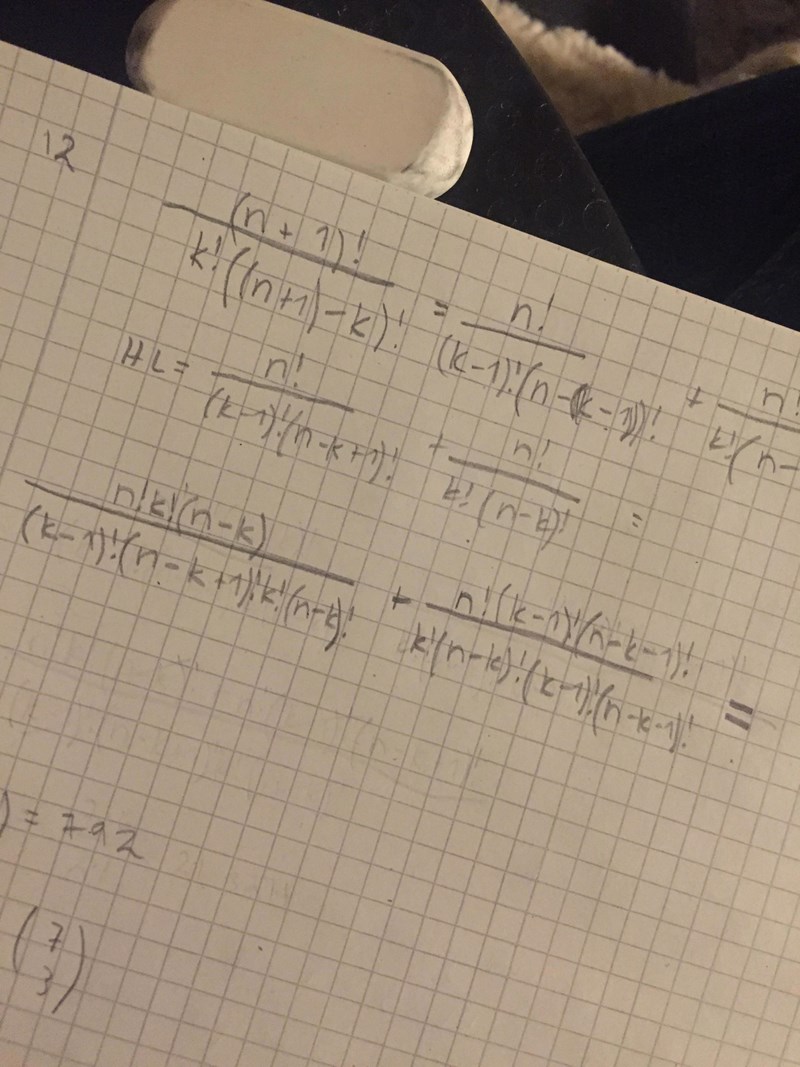 12
(n + 1)! / k!((n+1)-k)! = n! / (k-1)!(n-(k-1))! + n! / k!(n-
HL = n! / (k-1)!(n-k+1)! + n! / k!(n-k)! =
n!k!(n-k) / (k-1)!(n-k+1)!k!(n-k)! + n!(k-1)!(n-k-1)! / k!(n-k)!(k-1)!(n-k-1)! =
) = 792
(7
3)